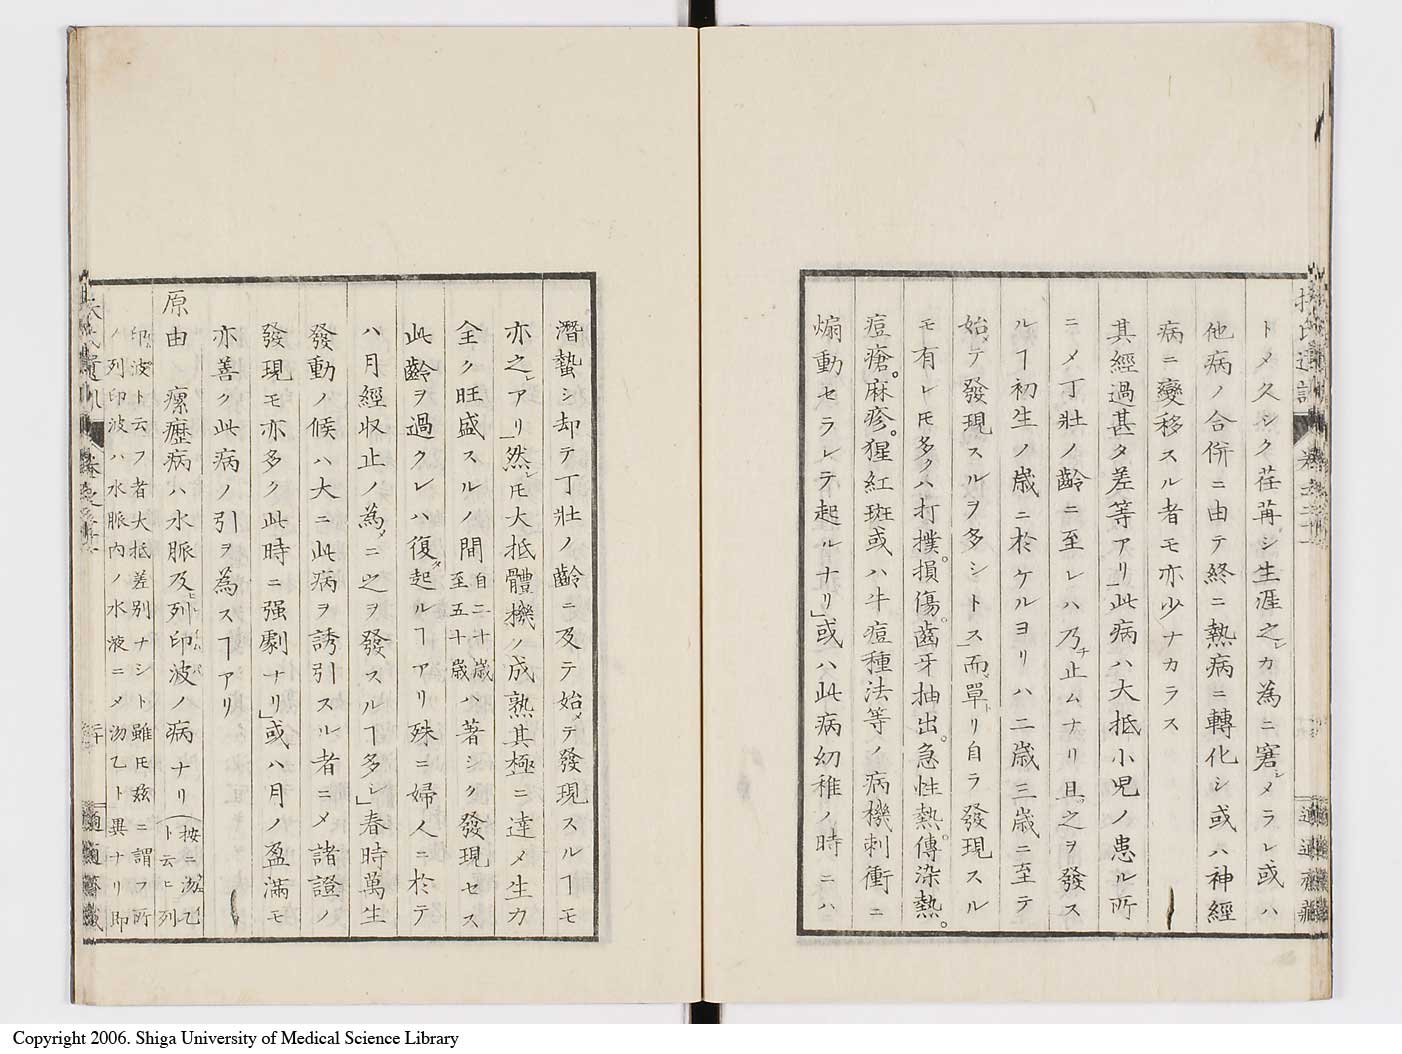 トメ久シク荏苒シ生涯之レカ為ニ窘メラレ或ハ
他病ノ合併ニ由テ終ニ熱病ニ轉化シ或ハ神經
病ニ變移スル者モ亦少ナカラス
其經過甚タ差等アリ」此病ハ大抵小児ノ患ル所
ニメ丁壯ノ齢ニ至レハ乃チ止ムナリ且之ヲ發ス
ルヿ初生ノ歳ニ於ケルヨリハ二歳三歳ニ至テ
始メテ發現スルヲ多シトス」而單リ自ラ發現スル
モ有レ𪜈多クハ打撲。損傷。齒牙抽出。急性熱。傳染熱。
痘瘡。麻疹。猩紅斑或ハ牛痘種法等ノ病機刺衝ニ
煽動セラレテ起ルナリ」或ハ此病幼稚ノ時ニハ
潛蟄シ却テ丁壯ノ齢ニ及テ始メテ發現スルヿモ
亦之レアリ」然レ𪜈大抵體機ノ成熟其極ニ達メ生力
全ク旺盛スルノ間自二十歳至五十歳ハ著シク發現セス
此齡ヲ過クレハ復タ起ルヿアリ殊ニ婦人ニ於テ
ハ月經収止ノ為メニ之ヲ發スルヿ多シ」春時萬生
發動ノ候ハ大ニ此病ヲ誘引スル者ニメ諸證ノ
發現モ亦多ク此時ニ强劇ナリ」或ハ月ノ盈滿モ
亦善ク此病ノ引ヲ為スヿアリ
原由 瘰癧病ハ水脈及ヒ列印波ノ病ナリ(按ニ泐乙ト云ヒ列
印波ト云フ者大抵差別ナシト雖𪜈茲ニ謂フ所
ノ列印波ハ水脈内ノ水液ニメ泐乙ト異ナリ即
Copyright 2006. Shiga University of Medical Science Library